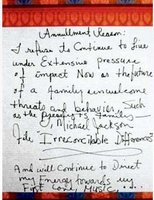 Annullment Reason:
I refuse to Continue to live
under Extensive pressure
of impact Now as the future
of a family unwelcome
threats and behavior, Such
as the family
Michael Jackson
file "Irreconcilable Differences"
And will Continue to Direct
my Energy towards
and MUSIC